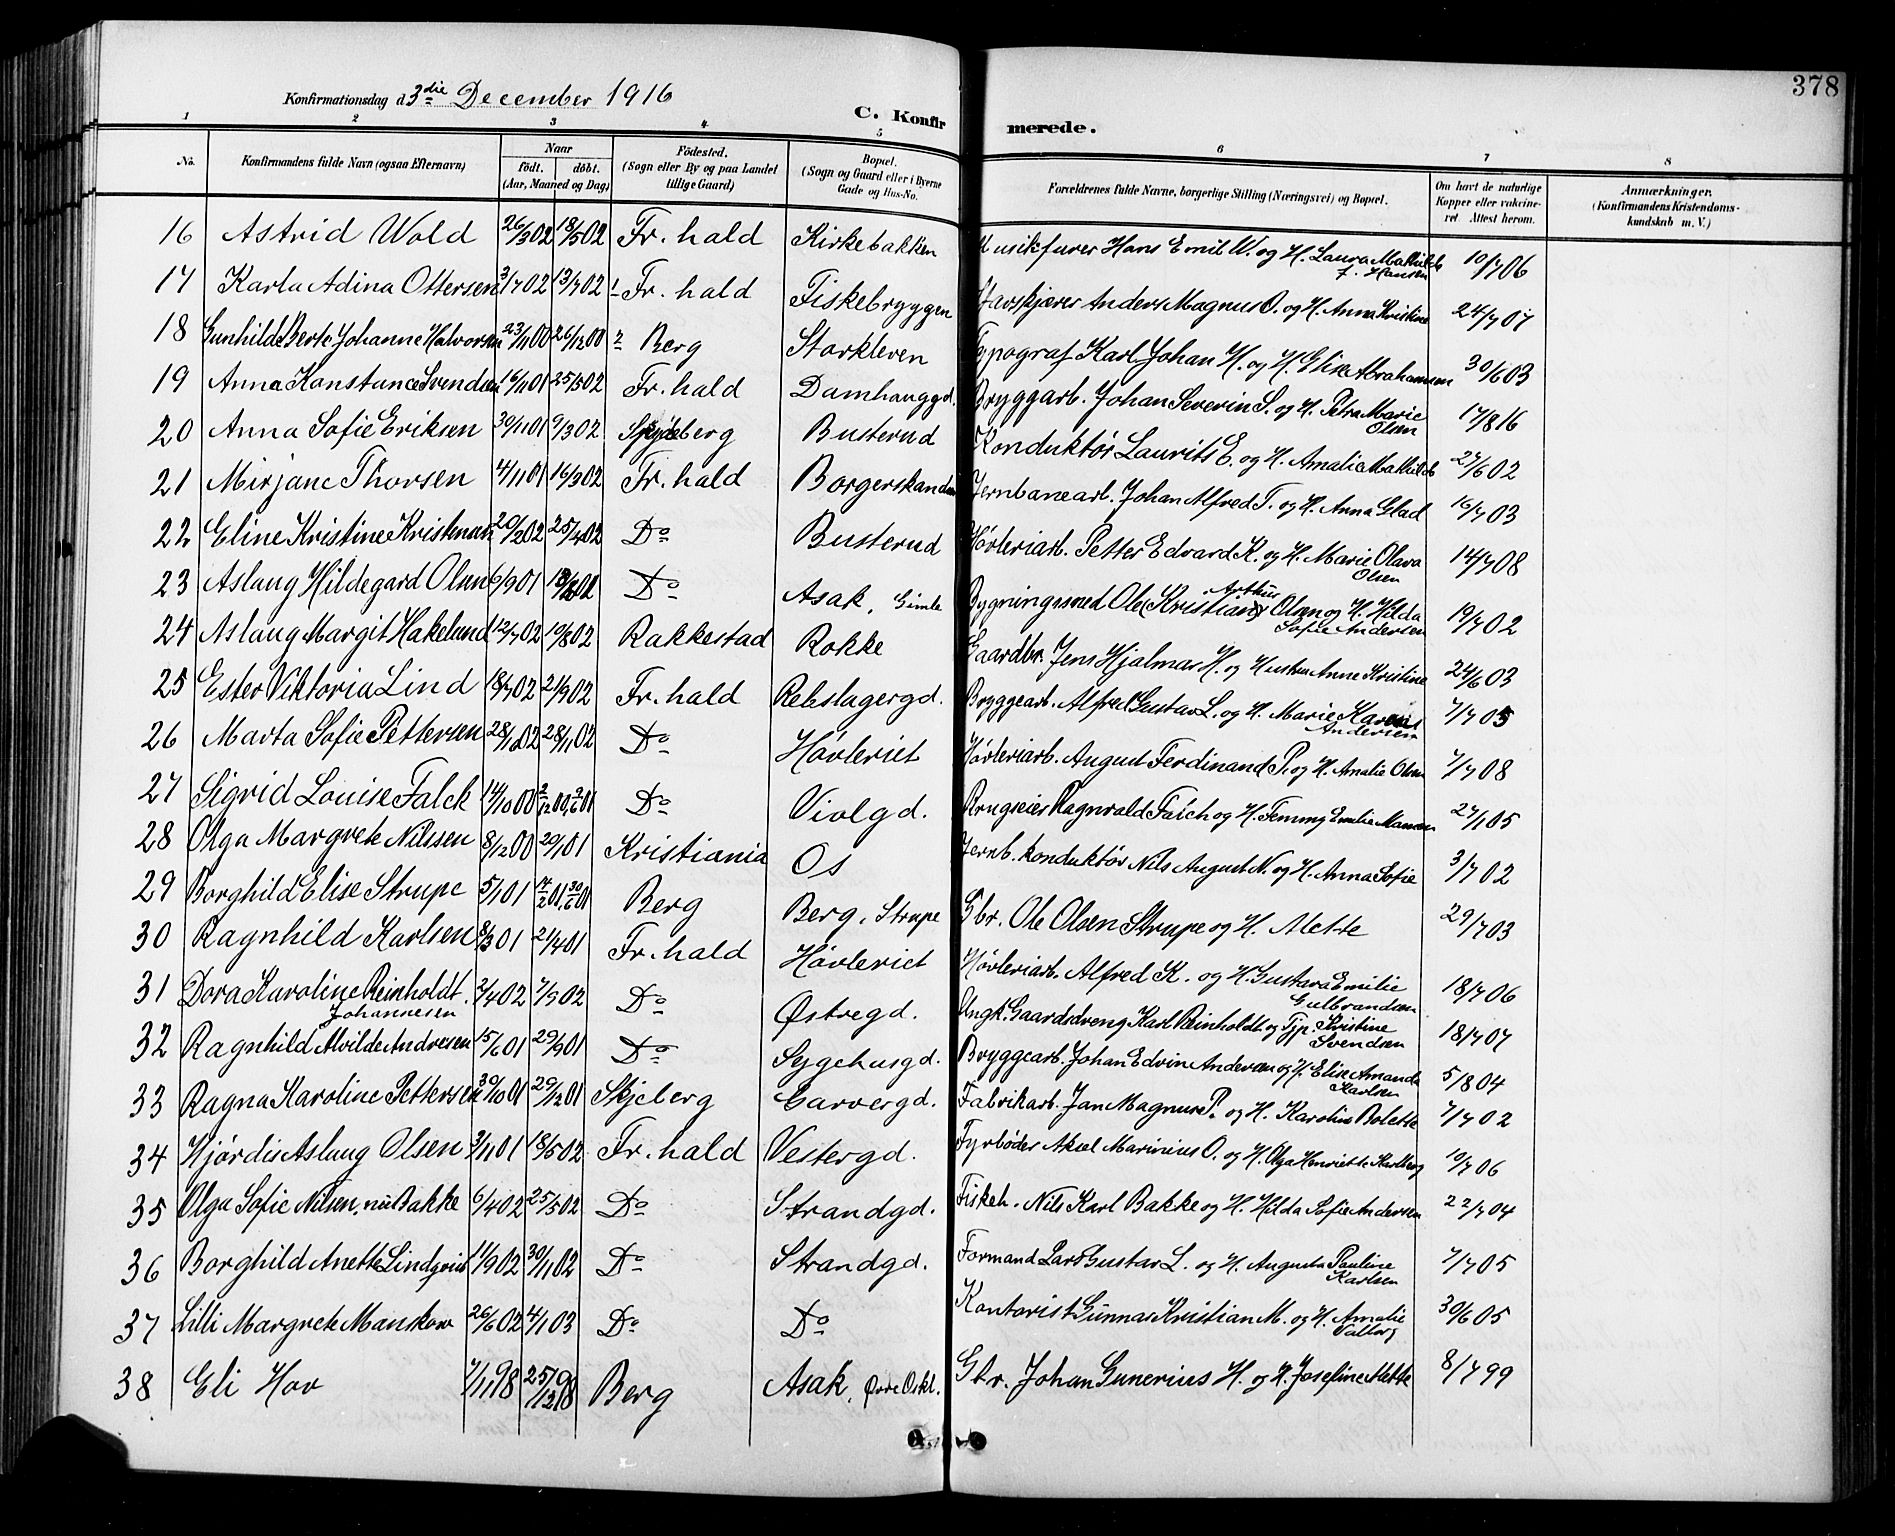 378
Konfirmationsdag d. 3die December 1916
C. Konfirmerede.
1 2 3 4 5 6 7 8
No. Konfirmandens fulde Navn (ogsaa Efternavn) Naar født. døbt. (Aar, Maaned og Dag) Fødested. (Sogn eller By og paa Landet tillige Gaard) Bopæl. (Sogn og Gaard eller i Byerne Gade og Hus-No. Forældrenes fulde Navne, borgerlige Stilling (Næringsvei) og Bopæl. Om havt de naturlige Kopper eller vakcineret. Attest herom. Anmærkninger. (Konfirmandens Kristendomskundskab m. V.)
16 Astrid Wold 26/3 02 18/5 02 Fr. hald Kirkebakken Musikfurer Hans Emil W. og H. Laura Mathilde f. Hansen 10/7 06
17 Karla Adina Ottersen 3/1 02 13/7 02 Fr. hald Fiskebryggen Anders Magnus O. og H. Anna Kristine 24/7 07
18 Gunhilda Berte Johanne Halvorsen 23/11 00 26/12 00 Berg Storkleven Typograf Karl Johan H. og H. Elise Abrahamsen 30/6 03
19 Anna Konstance Svendsen 16/11 01 25/3 02 Fr. hald Damhauggd. Bryggarb. Johan Severin S. og H. Petra Marie Olsen 17/8 16
20 Anna Sofie Eriksen 30/11 01 9/3 02 Spydeberg Busterud Konduktør Laurits E. og H. Amalie Mathilde 27/6 02
21 Mirjane Thorsen 4/11 01 16/3 02 Fr. hald Borgerskandsen Jernbanearb. Johan Alfred T. og H. Anna Glad 16/7 03
22 Eline Kristine Kristensen 20/2 02 25/4 02 Do Busterud Høvleriarb. Petter Edvard K. og H. Marie Olava Olsen 14/7 08
23 Aslaug Hildegard Olsen 6/9 01 02 Do Asak, Gimle Bygningssmed Ole (Kristian) Arthur Olsen og H. Hilda Sofie Andersen 19/7 02
24 Aslaug Margit Hakelund 12/7 02 10/8 02 Rakkestad Rokke Gaardbr. Jens Hjalmar H. og Hustru Anne Kristine 24/6 03
25 Ester Viktoria Lind 18/7 02 21/9 02 Fr. hald Rebslagergd. Bryggearb. Alfred Gustav L. og H. Marie Andersen 7/7 05
26 Marta Sofie Pettersen 28/10 02 28/11 02 Do Høvleriet Høvleriarb. August Ferdinand P. og H. Amalie Olsen 7/7 08
27 Sigrid Louise Falck 14/10 00 2/12 00, 2/6 01 Do Violgd. Ragnvald Falch og H. Femmy Emilie 27/1 05
28 Olga Margrete Nilssen 8/12 00 20/1 01 Kristiania Os Jernb. konduktør Nils August N. og H. Anna Sofie 3/7 02
29 Borghild Elise Strupe 5/1 01 17/2 01, 30/6 01 Berg Berg, Strupe Gbr. Ole Olsen Strupe og H. Mette 29/7 03
30 Ragnhild Karlsen 8/3 01 21/4 01 Fr. hald Høvleriet Høvleriarb. Alfred K. og H. Gustava Emilie Gulbrandsen 18/7 06
31 Dora Karoline Reinholdt Johannesen 2/4 02 7/9 02 Do Østregd. Ungk. Gaardsdreng Karl Reinholdt og Tjp. Kristine Svendsen 18/7 07
32 Ragnhild Alvilde Andresen 15/6 01 29/9 01 Do Sygehusgd. Bryggearb. Johan Edvin Andersen og H. Elise Amanda Karlsen 5/8 04
33 Ragna Karoline Pettersen 30/10 01 29/12 01 Skjeberg Garvergd. Fabrikarb. Jan Magnus P. og H. Karoline Bolette 7/7 02
34 Hjørdis Aslaug Olsen 3/11 01 18/5 02 Fr. hald Vestergd. Fyrbøder Aksel Marinius O. og H. Olga Henriette Karlberg 10/7 06
35 Olga Sofie Nilsen, nu Bakke 6/4 02 25/5 02 Do Strandgd. Fiskeh. Nils Karl Bakke og H. Hilda Sofie Andersen 22/7 04
36 Borghild Anette Lindqvist 11/9 02 30/11 02 Do Strandgd. Formand Lars Gustav L. og H. Augusta Pauline Karlsen 7/7 05
37 Lilli Margrete Manskow 26/6 02 4/1 03 Do Do Kontorist Gunnar Kristian M. og H. Amalie Valborg 30/6 05
38 Eli Hov 7/11 98 25/12 98 Berg Asak, Øvre Oskl. Gbr. Johan Gunerius H. og H. Josefine Mette 8/7 99